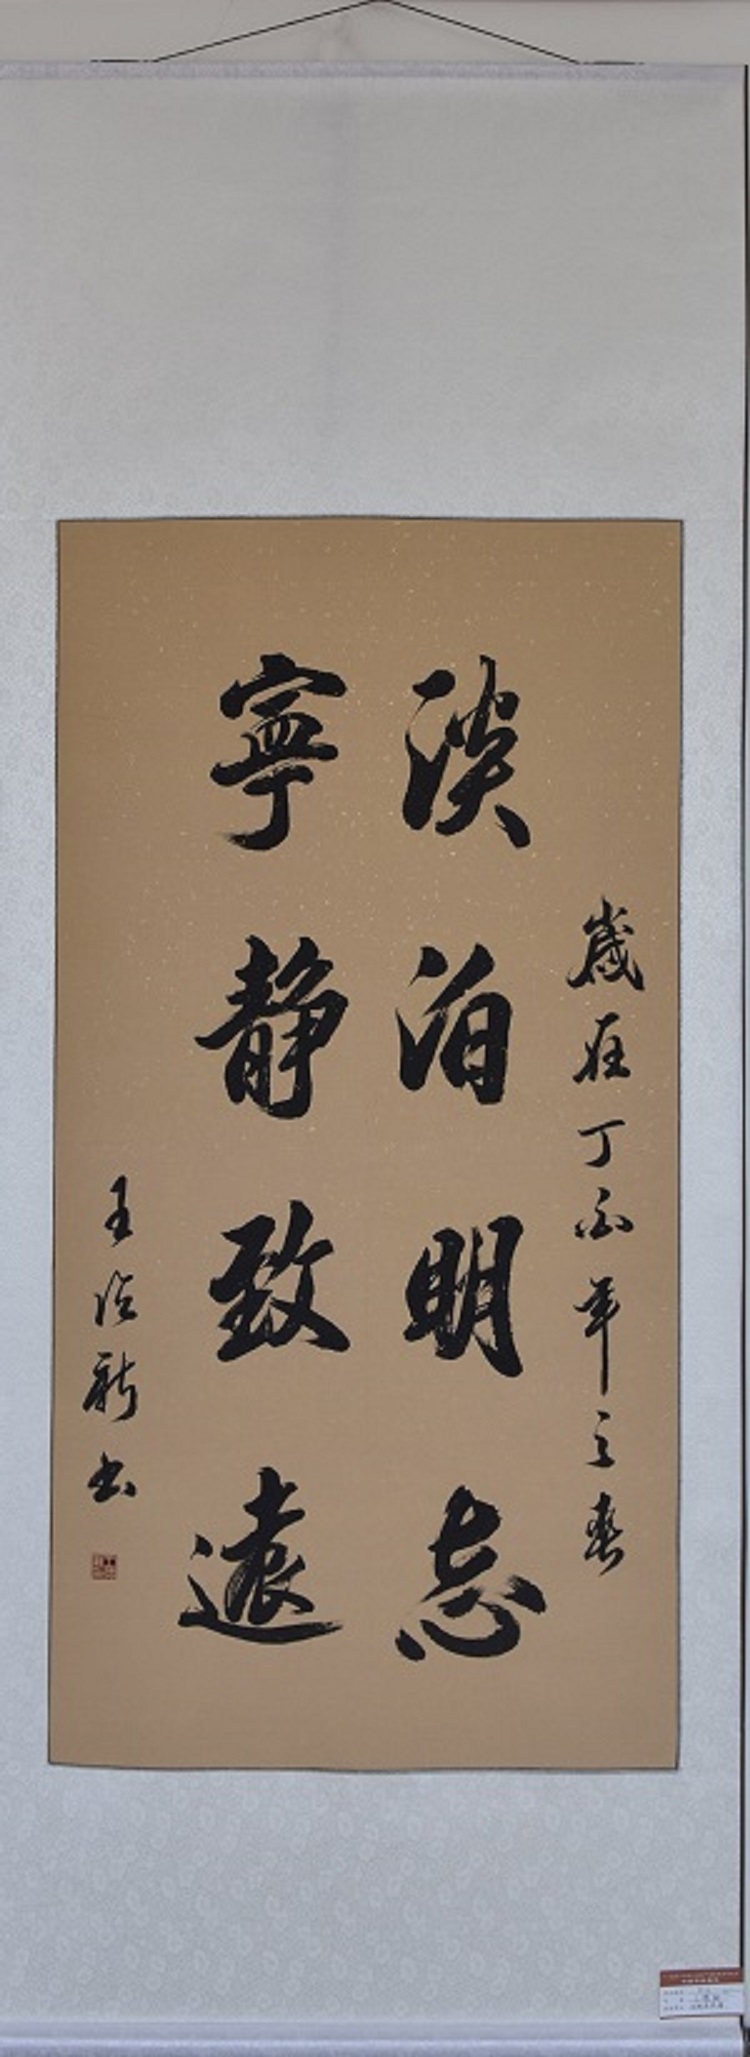 歲在丁酉年之春
淡泊明志
寧靜致遠
王 新書